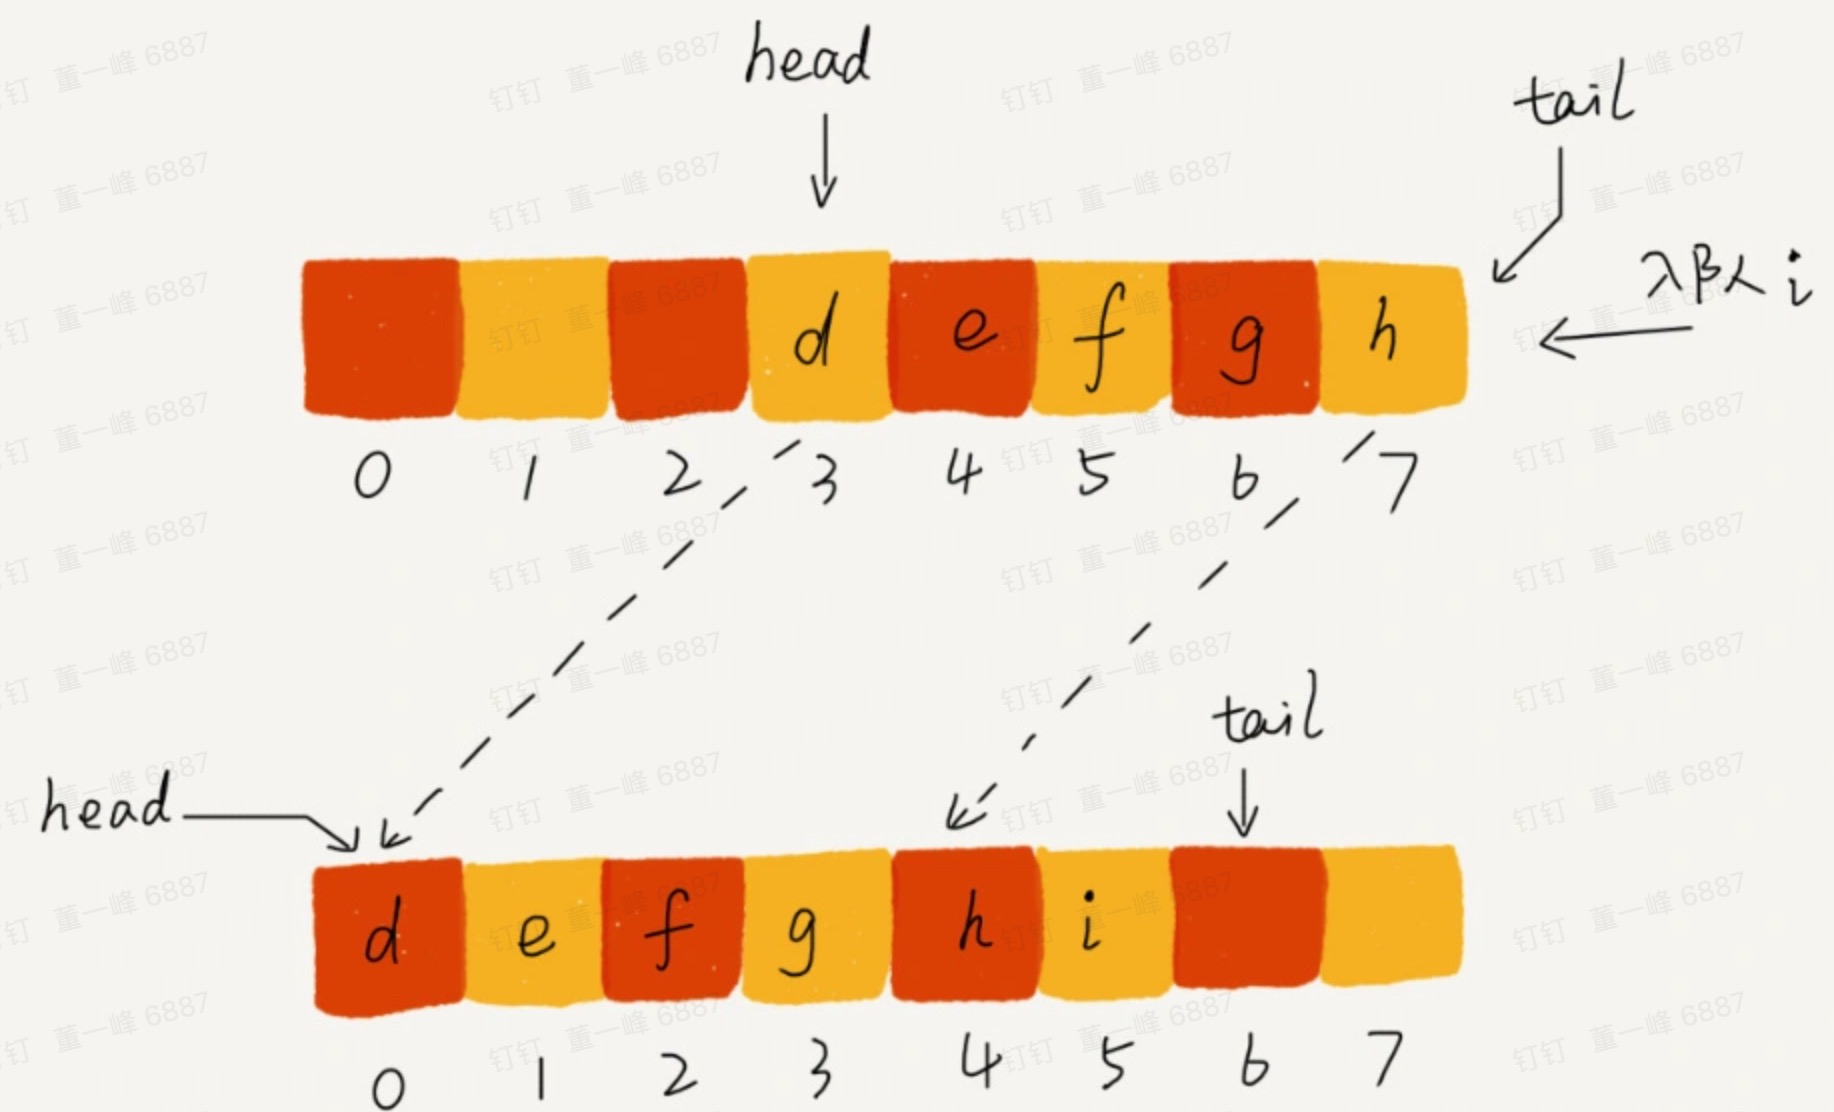 head
tail
入队 i
d e f g h
0 1 2 3 4 5 6 7
tail
head
d e f g h i
0 1 2 3 4 5 6 7
钉钉 董一峰 6887